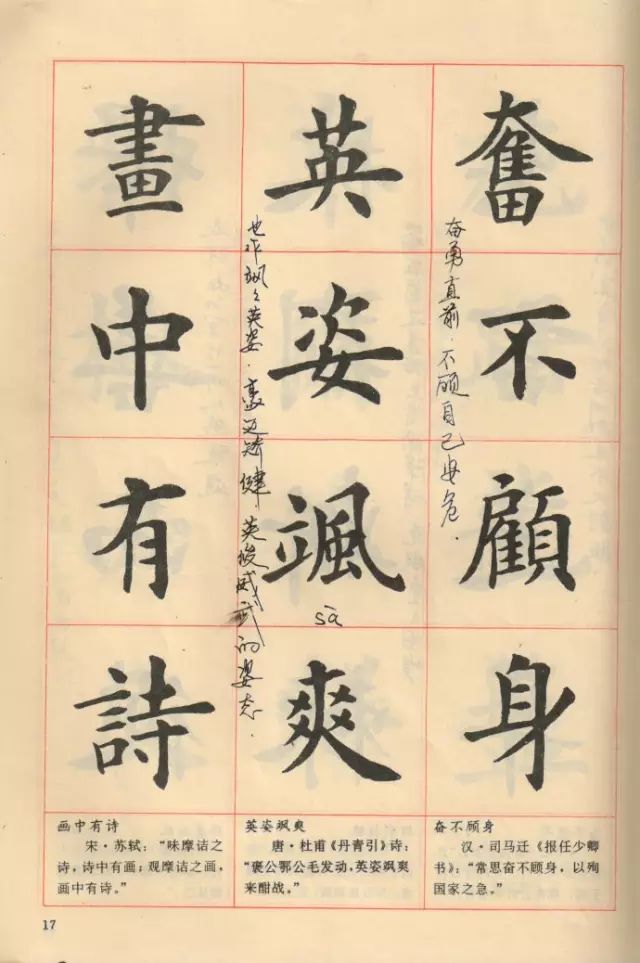 奮不顧身
奋勇直前.不顾自己安危.
英姿颯爽
sà
也作飒飒英姿.豪迈矫健 英俊威武的姿态.
畫中有詩
奋不顾身
汉·司马迁《报任少卿
书》：“常思奋不顾身，以殉
国家之急。”
英姿飒爽
唐·杜甫《丹青引》诗：
“褒公鄂公毛发动，英姿飒爽
来酣战。”
画中有诗
宋·苏轼：“味摩诘之
诗，诗中有画；观摩诘之画，
画中有诗。”
17